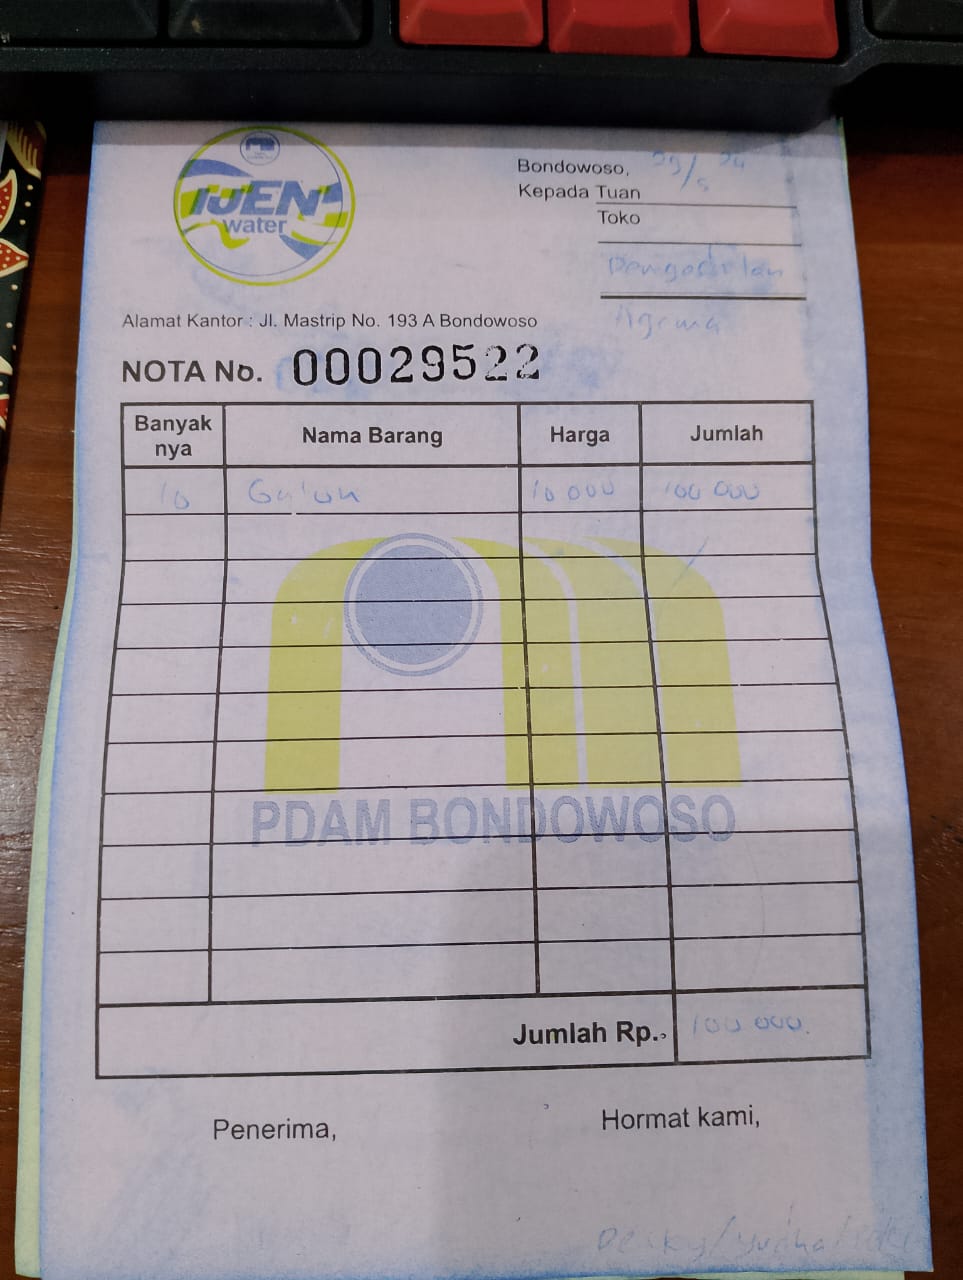 IJEN
water
Bondowoso,
Kepada Tuan
Toko
Pengadilan
Agama
Alamat Kantor : Jl. Mastrip No. 193 A Bondowoso
NOTA No. 00029522
Banyak nya Nama Barang Harga Jumlah
10 Galon 10 000 100 000
PDAM BONDOWOSO
Jumlah Rp. 100 000.
Penerima, Hormat kami,